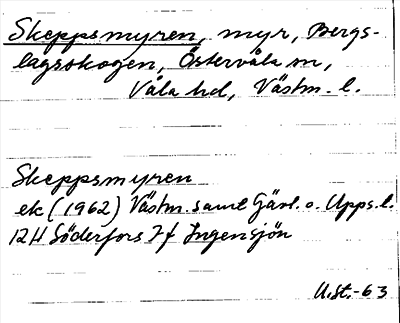 Skeppsmyren, myr, Bergs-
lagsskogen, Östervåla sn,
Våla hd, Västm. l.
Skeppsmyren
ek (1962) Västm. samt Gävl. o. Upps. l.
12H Söderfors 7f Ingensjön
U.St.-63